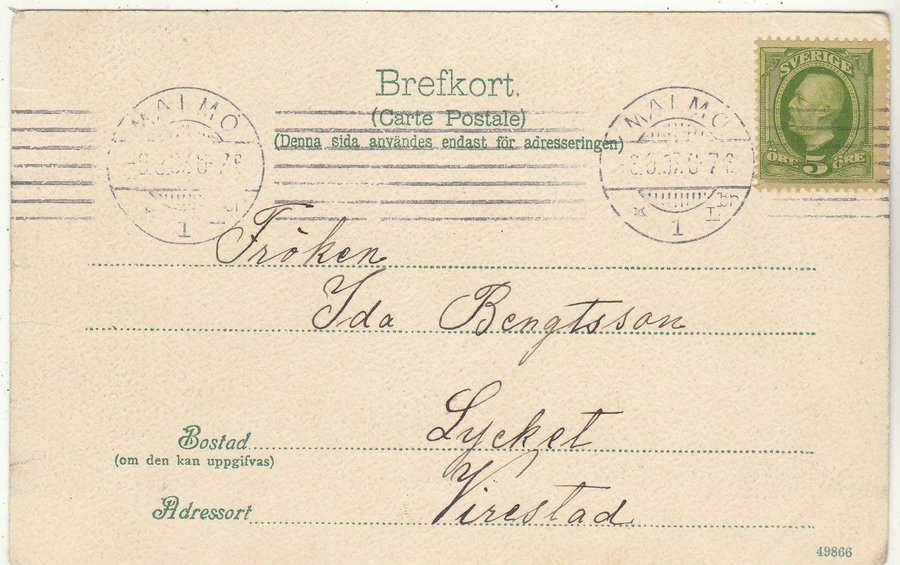 Brefkort.
(Carte Postale)
(Denna sida användes endast för adresseringen)
SVERIGE
ÖRE 5 ÖRE
MALMÖ
1
MALMÖ
1
Fröken
Ida Bengtsson
Lycket
Bostad
(om den kan uppgifvas)
Virestad
Adressort
49866